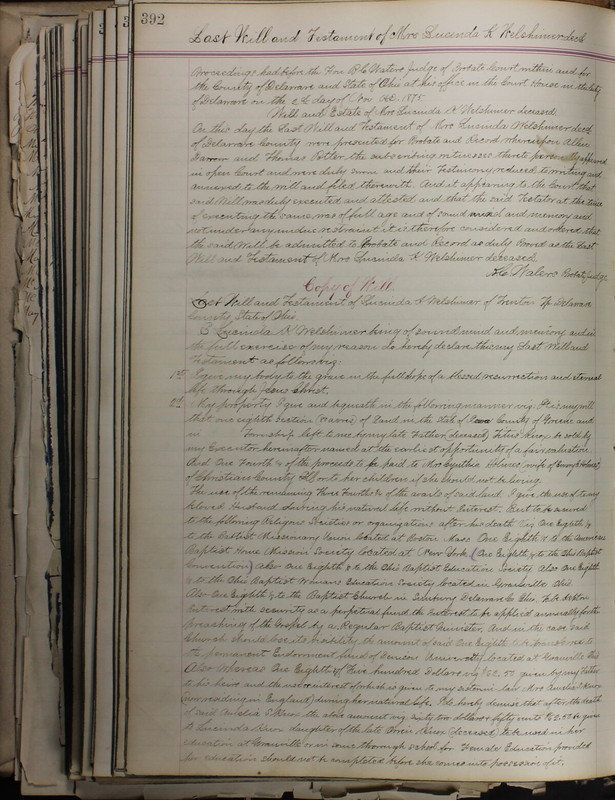 392
Last Will and Testament of Mrs Lucinda K Welshimer decd
Proceedings had before the Hon B C Waters Judge of Probate Court within and for
the County of Delaware and State of Ohio at his office in the Court House in the City
of Delaware on the day of Nov AD. 1875
Will and Estate of Mrs Lucinda K Welshimer deceased
On this day the Last Will and Testament of Mrs Lucinda Welshimer decd
of Delaware County were presented for Probate and Record whereupon Allen
Darrow and Thomas Potter the subscribing witnesses thereto personally appeared
in open Court and were duly sworn and their Testimony reduced to writing and
annexed to the will and filed therewith. And it appearing to the Court that
said Will was duly executed and attested and that the said Testator at the time
of executing the same was of full age and of sound mind and memory and
not under any undue restraint it is therefore considered and ordered that
the said Will be admitted to Probate and Record as duly Proved as the Last
Will and Testament of Mrs Lucinda K Welshimer deceased
Waters Probate Judge
Copy of Will
Last Will and Testament of Lucinda K Welshimer of Trenton Tp Delaware
County State of Ohio
I Lucinda K Welshimer being of sound mind and memory and in
the full exercise of my reason do hereby declare this my Last Will and
Testament as following:
1st I give my body to the grave in the full hope of a blessed resurrection and eternal
life through Jesus Christ.
2d My property I give and bequeath in the following manner viz. It is my will
that one eighth section of Land in the State of Iowa County of Greene and
in Township left to me by my late Father, deceased, Titus Knox, be sold by
my Executor hereinafter named at the earliest opportunity of a fair valuation
And One Fourth ¼ of the proceeds to be paid to Mrs Cynthia Holmes (wife of Holmes)
of Christian County Ills or to her children if she should not be living.
The use of the remaining Three Fourths ¾ of the avails of said land I give the use to my
beloved Husband during his natural life without Interest. But to be assured
to the following Religious Societies or organizations after his death viz One Eighth ⅛
to the Baptist Missionary Union located at Boston Mass One Eighth ⅛ to the American
Baptist Home Mission Society located at New York (One Eighth ⅛ to the Ohio Baptist
Convention) Also One Eighth ⅛ to the Ohio Baptist Education Society Also One Eighth
⅛ to the Ohio Baptist Womans Education Society located in Granville Ohio
Also One Eighth ⅛ to the Baptist Church in Sunbury Delaware Co Ohio. To be kept on
Interest with security as a perpetual fund the Interest to be applied annually for the
preaching of the Gospel by a Regular Baptist Minister. And in the case said
Church should lose its visibility the amount of said One Eighth to be transferred to
the permanent Endowment fund of Denison University located at Granville Ohio
Also Whereas One Eighth of Five hundred Dollars viz $62.50 given by my Father
to his heirs and the use or interest of which is given to my sister in law Mrs Amelia S Knox
(now residing in England) during her natural life. I do hereby devise that after the death
of said Amelia S. Knox the above amount viz Sixty two dollars & fifty cents $62.50 be given
to Lucinda Knox daughter of the late Knox (deceased) to be used in her
education at Granville or in some thorough school for Female Education provided
her education should not be completed before she comes into possession of it.